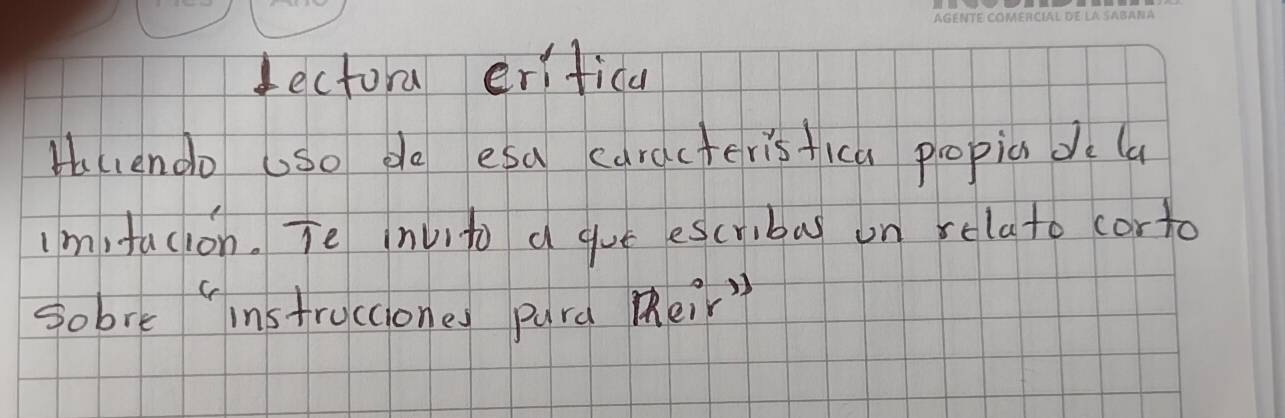 AGENTE COMERCIAL DE LA SABANA
Lectora crítica
Haciendo uso de esa característica propia de la
imitación. Te invito a que escribas un relato corto
sobre "instrucciones para Reir"